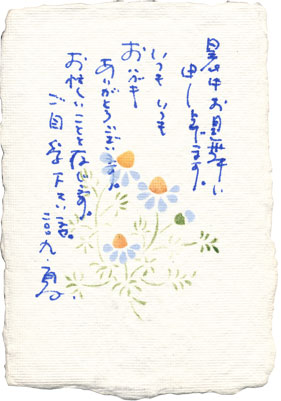 暑中お見舞い
申し上げます。
いつもいつも
おハガキ
ありがとうございます。
お忙しいことと存じます。
ご自愛下さいませ。
二〇〇九・夏